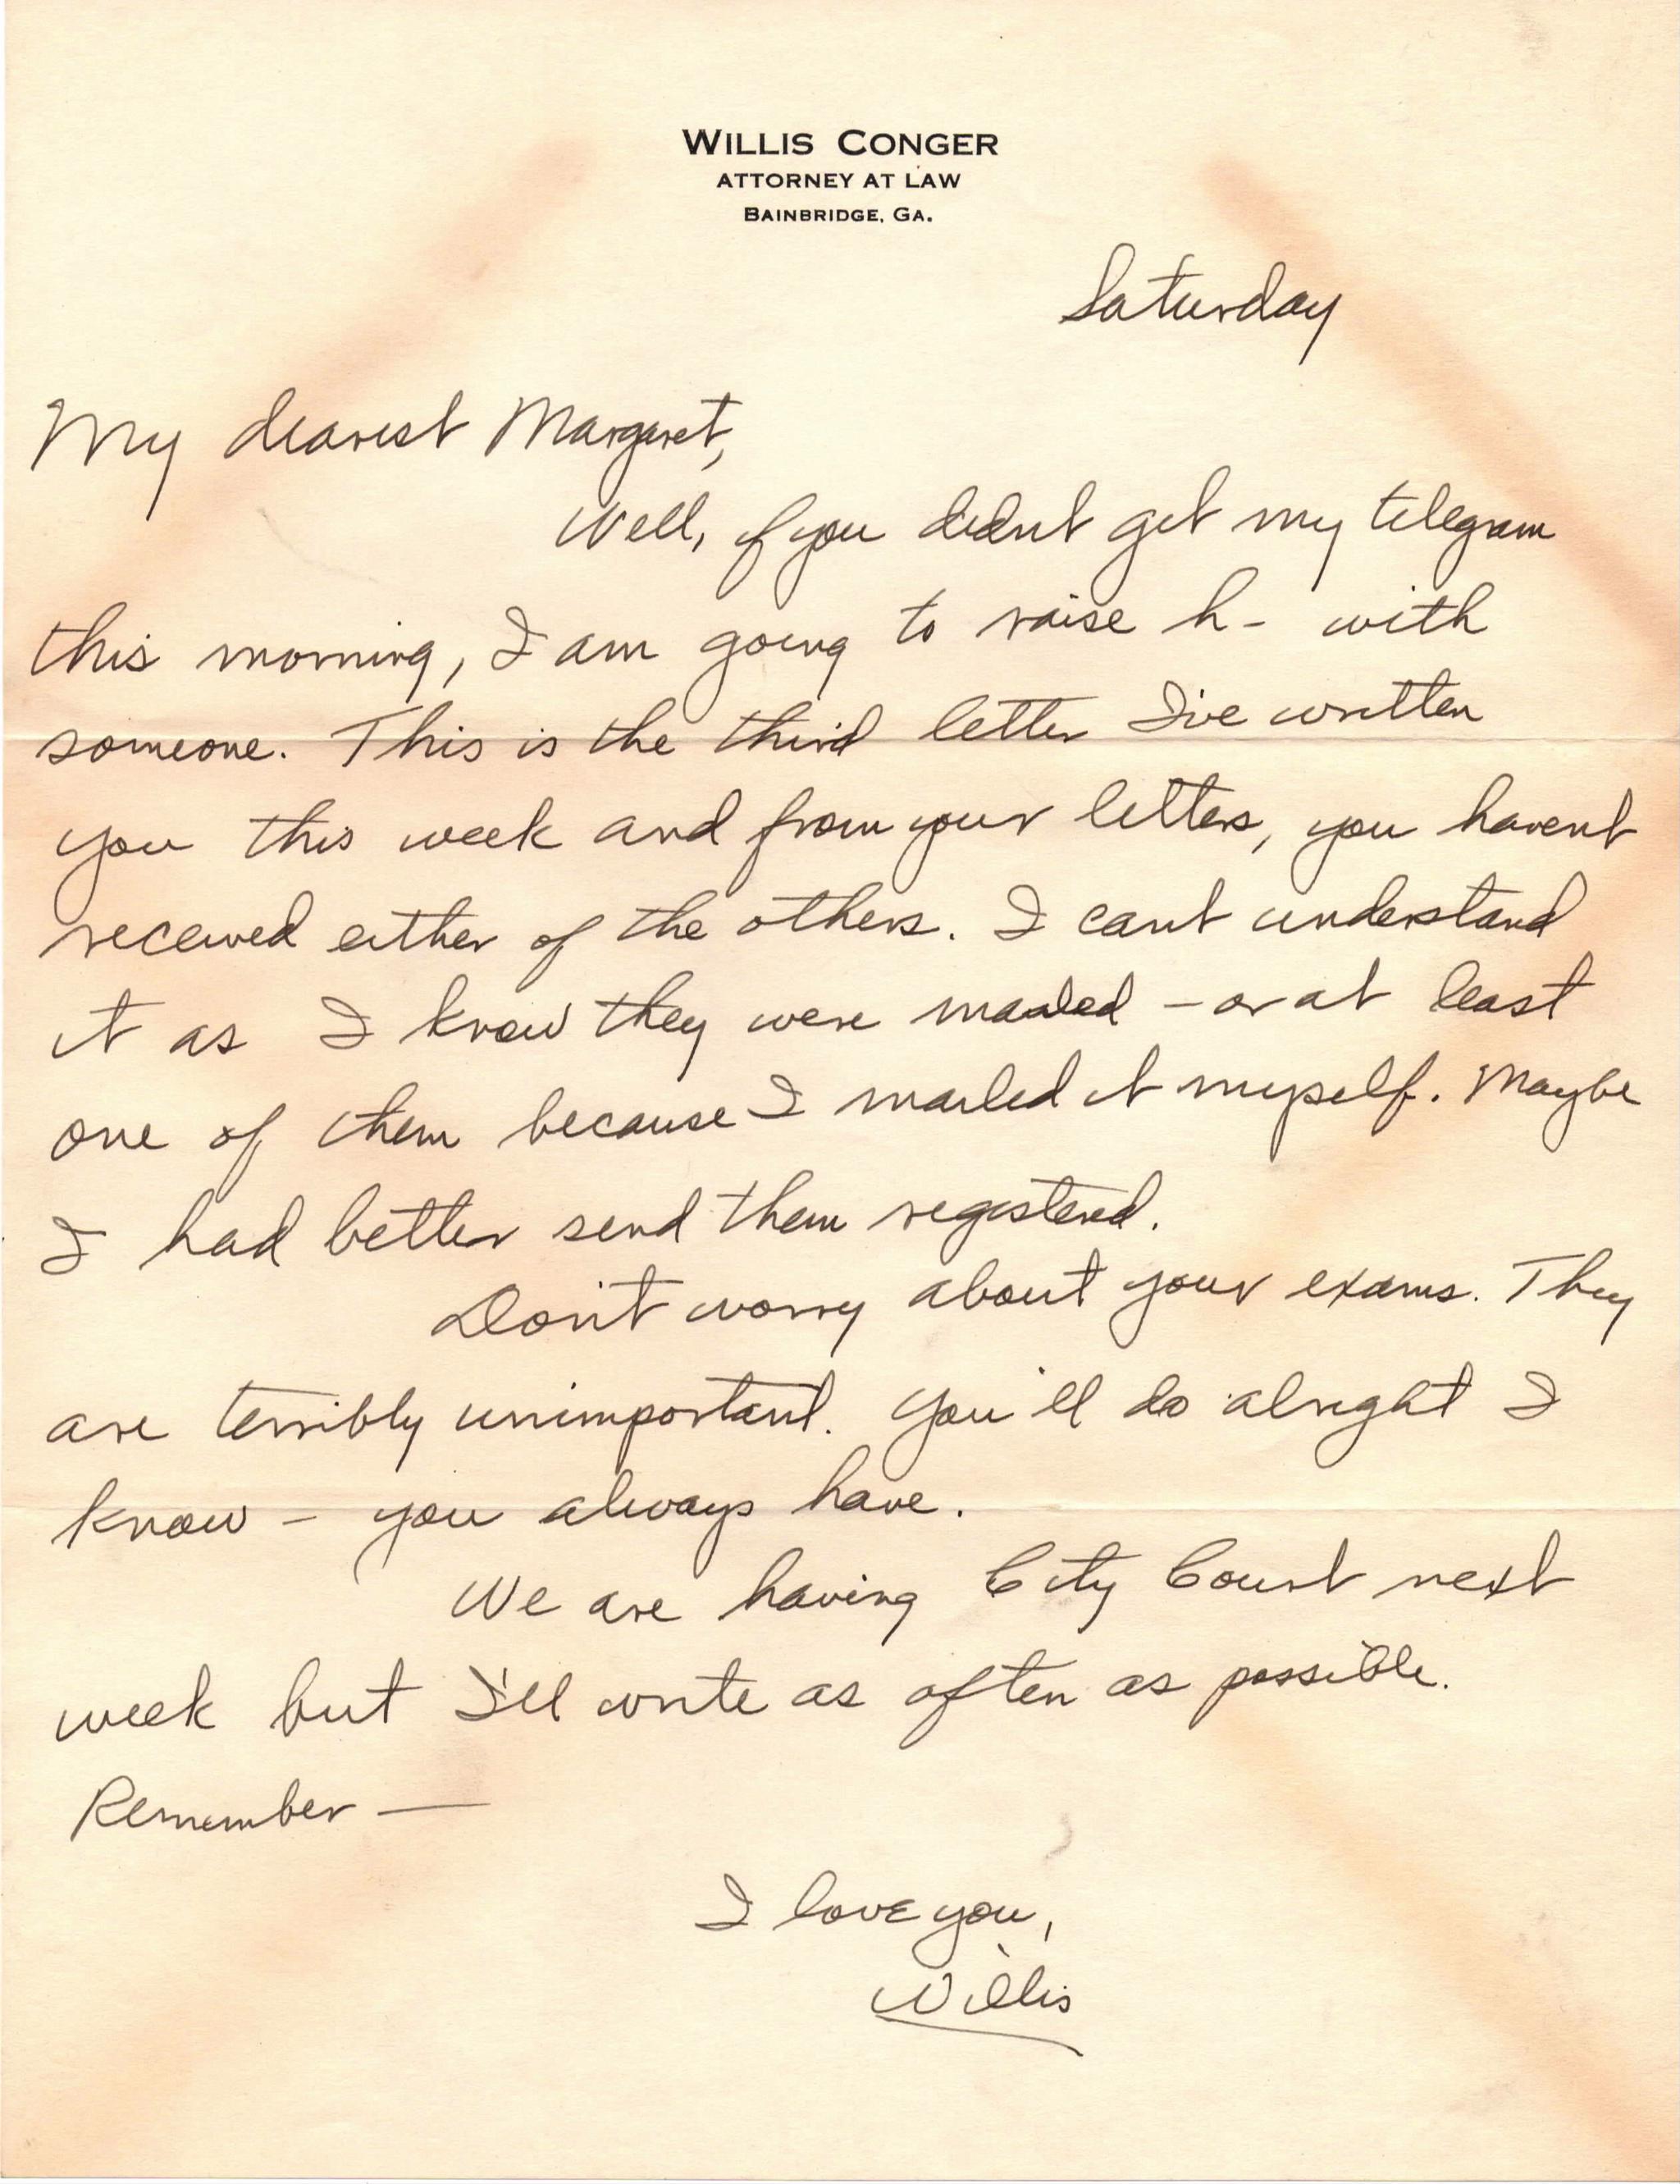 WILLIS CONGER
ATTORNEY AT LAW
BAINBRIDGE, GA.
Saturday
My dearest Margaret,
Well, if you didnt get my telegram
this morning, I am going to raise h- with
someone. This is the third letter I've written
you this week and from your letters, you havent
received either of the others. I cant understand
it as I know they were mailed - or at least
one of them because I mailed it myself. Maybe
I had better send them registered.
Don't worry about your exams. They
are terribly unimportant. You'll do alright I
know - you always have.
We are having City Court next
week but I'll write as often as possible.
Remember —
I love you,
Willis